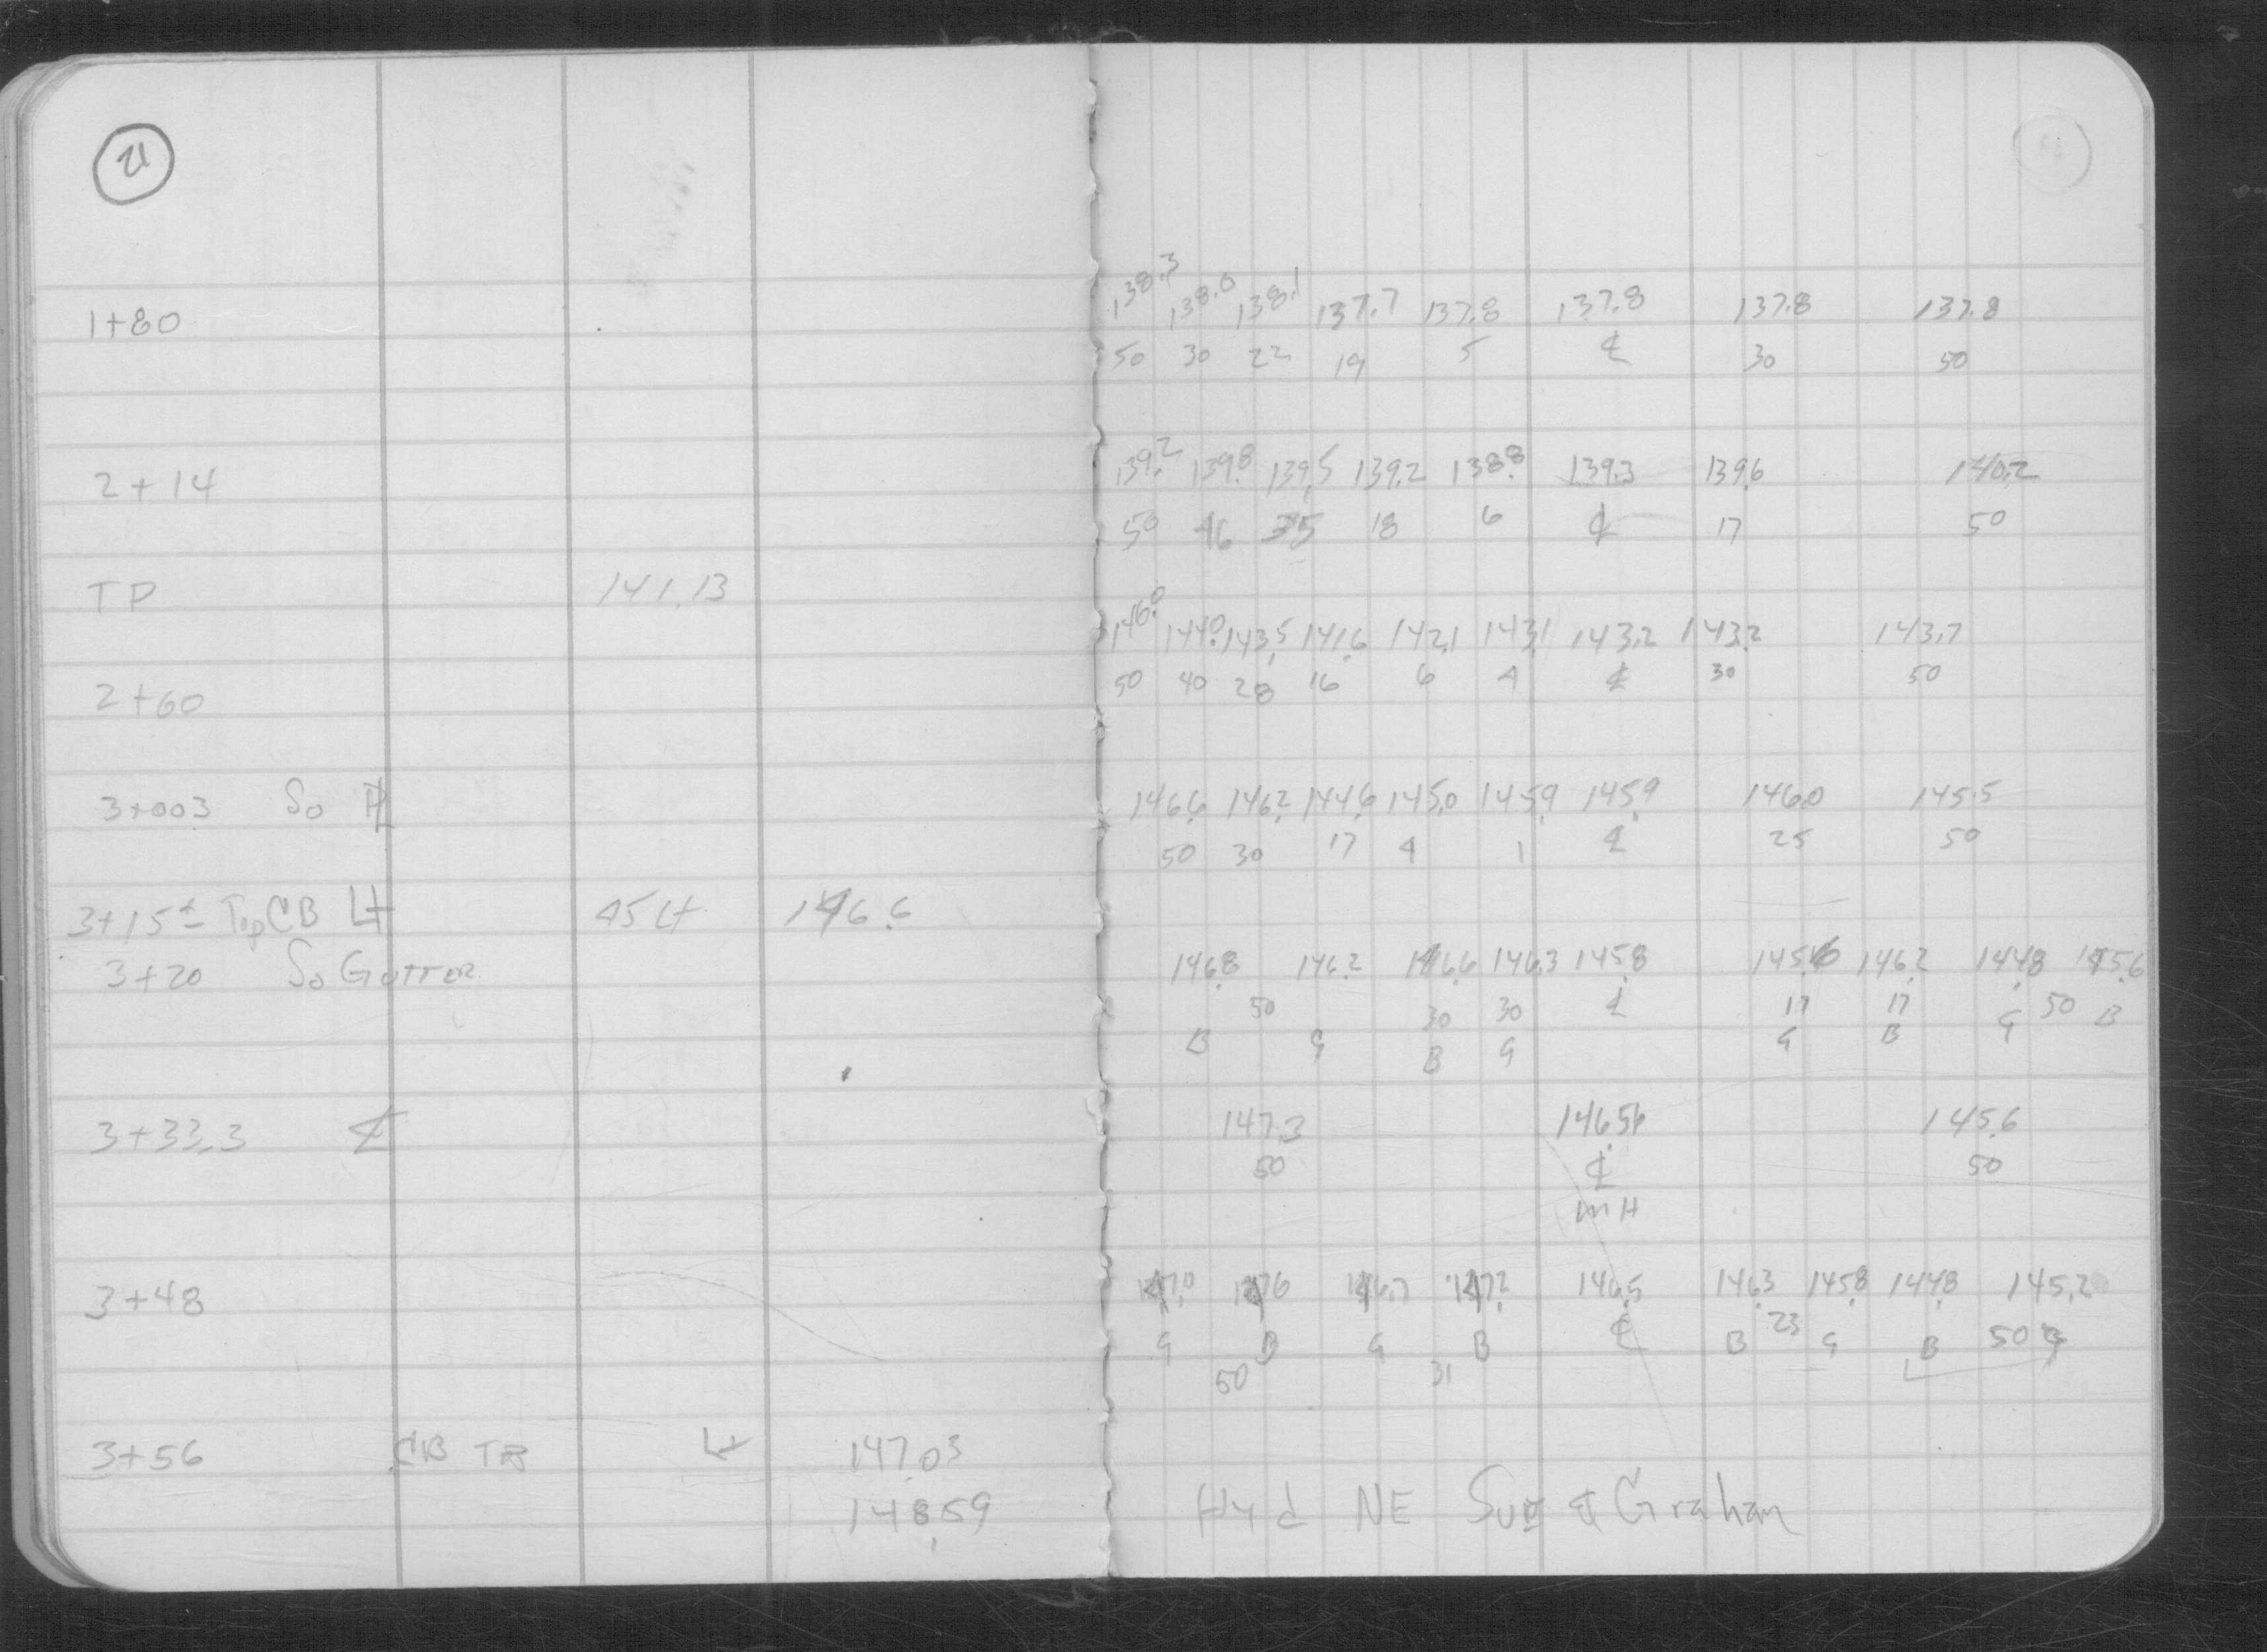 21
1+80
2+14
TP 141.13
2+60
3+003 So ⅊
3+15± Top CB Lt 45 Lt 146.6
3+20 So Gutter
3+33.3 ℄
3+48
3+56 CB TB Lt 147.03
148.59
138.3 138.0 138.1 137.7 137.8 137.8 137.8 137.8
50 30 22 19 5 ℄ 30 50
139.2 139.8 139.5 139.2 138.8 139.3 139.6 140.2
50 46 35 18 6 ℄ 17 50
146.0 144.0 143.5 141.6 142.1 143.1 143.2 143.2 143.7
50 40 28 16 6 4 ℄ 30 50
146.6 146.2 144.6 145.0 145.9 145.9 146.0 145.5
50 30 17 4 1 ℄ 25 50
146.8 146.2 146.6 146.3 145.8 145.6 146.2 144.8 145.6
50 30 30 ℄ 17 17 50
B G B G G B G B
147.3 146.56 145.6
50 ℄ 50
MH
147.0 147.6 146.7 147.2 146.5 146.3 145.8 144.8 145.2
G B G B ℄ B 23 G B 50 G
50 31
Hyd NE Sue & Graham